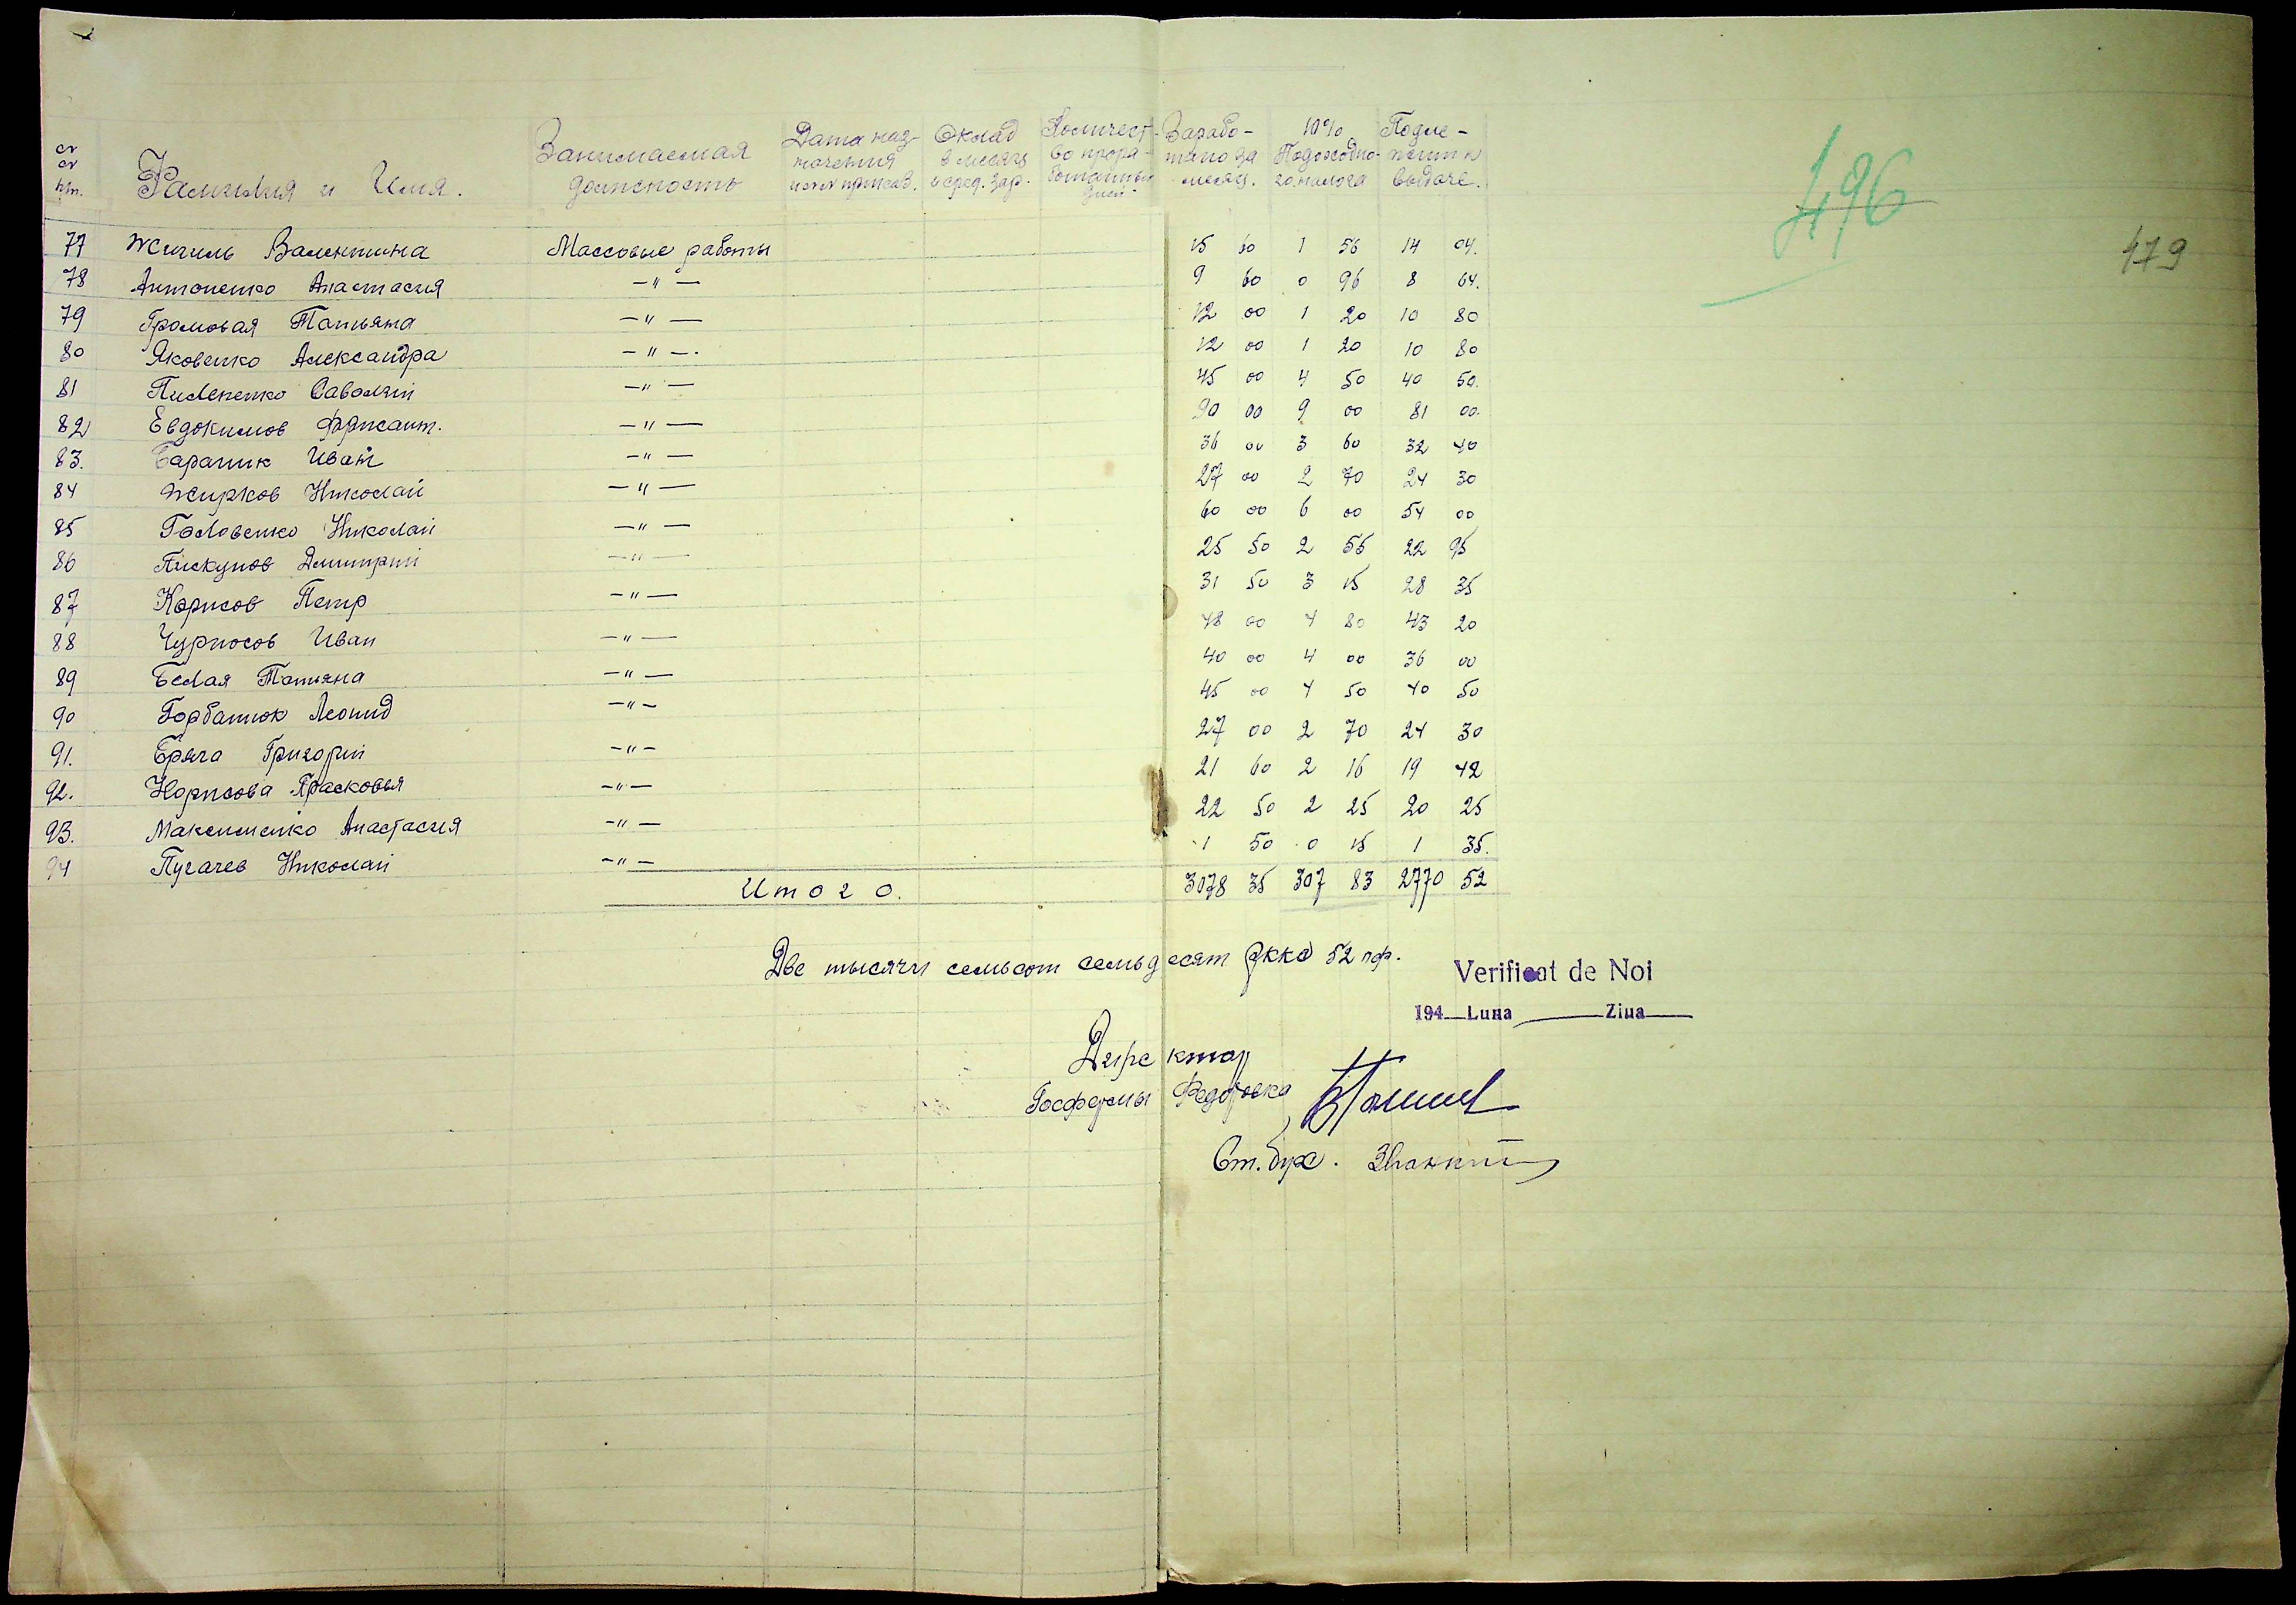 496
479
№№ пп. Фамилия и Имя. Занимаемая должность Дата наз-начения и № приказ. Оклад в месяц и сред. зар. Количест-во прора-ботанных дней Зарабо-тано за месяц. 10% Подоходно-го налога Подле-жит к выдаче.
77 Жигиль Валентина Массовые работы 15 60 1 56 14 04.
78 Антоненко Анастасия —"— 9 60 0 96 8 64.
79 Громовая Татьяна —"— 12 00 1 20 10 80
80 Яковенко Александра —"—. 12 00 1 20 10 80
81 Пилепенко Савелий —"— 45 00 4 50 40 50.
82 Евдокимов —"— 90 00 9 00 81 00.
83. Бараник Иван —"— 36 00 3 60 32 40
84 Жирков Николай —"— 27 00 2 70 24 30
85 Головенко Николай —"— 60 00 6 00 54 00
86 Пискунов Дмитрий —"— 25 50 2 55 22 95
87 Норисов Петр —"— 31 50 3 15 28 35
88 Чурносов Иван —"— 48 00 4 80 43 20
89 Белая Татьяна —"— 40 00 4 00 36 00
90 Горбатюк Леонид —"— 45 00 4 50 40 50
91. Бряга Григорий —"— 27 00 2 70 24 30
92. Норисова Прасковья —"— 21 60 2 16 19 42
93. Максименко Анастасия —"— 22 50 2 25 20 25
94 Пугачев Николай —"— 1 50 0 15 1 35.
Итого. 3078 35 307 83 2770 52
Две тысячи семьсот семьдесят ркка 52 пф.
Verificat de Noi
194 Luna Ziua
Директор
Госфермы Федоровка
Ст. бух.